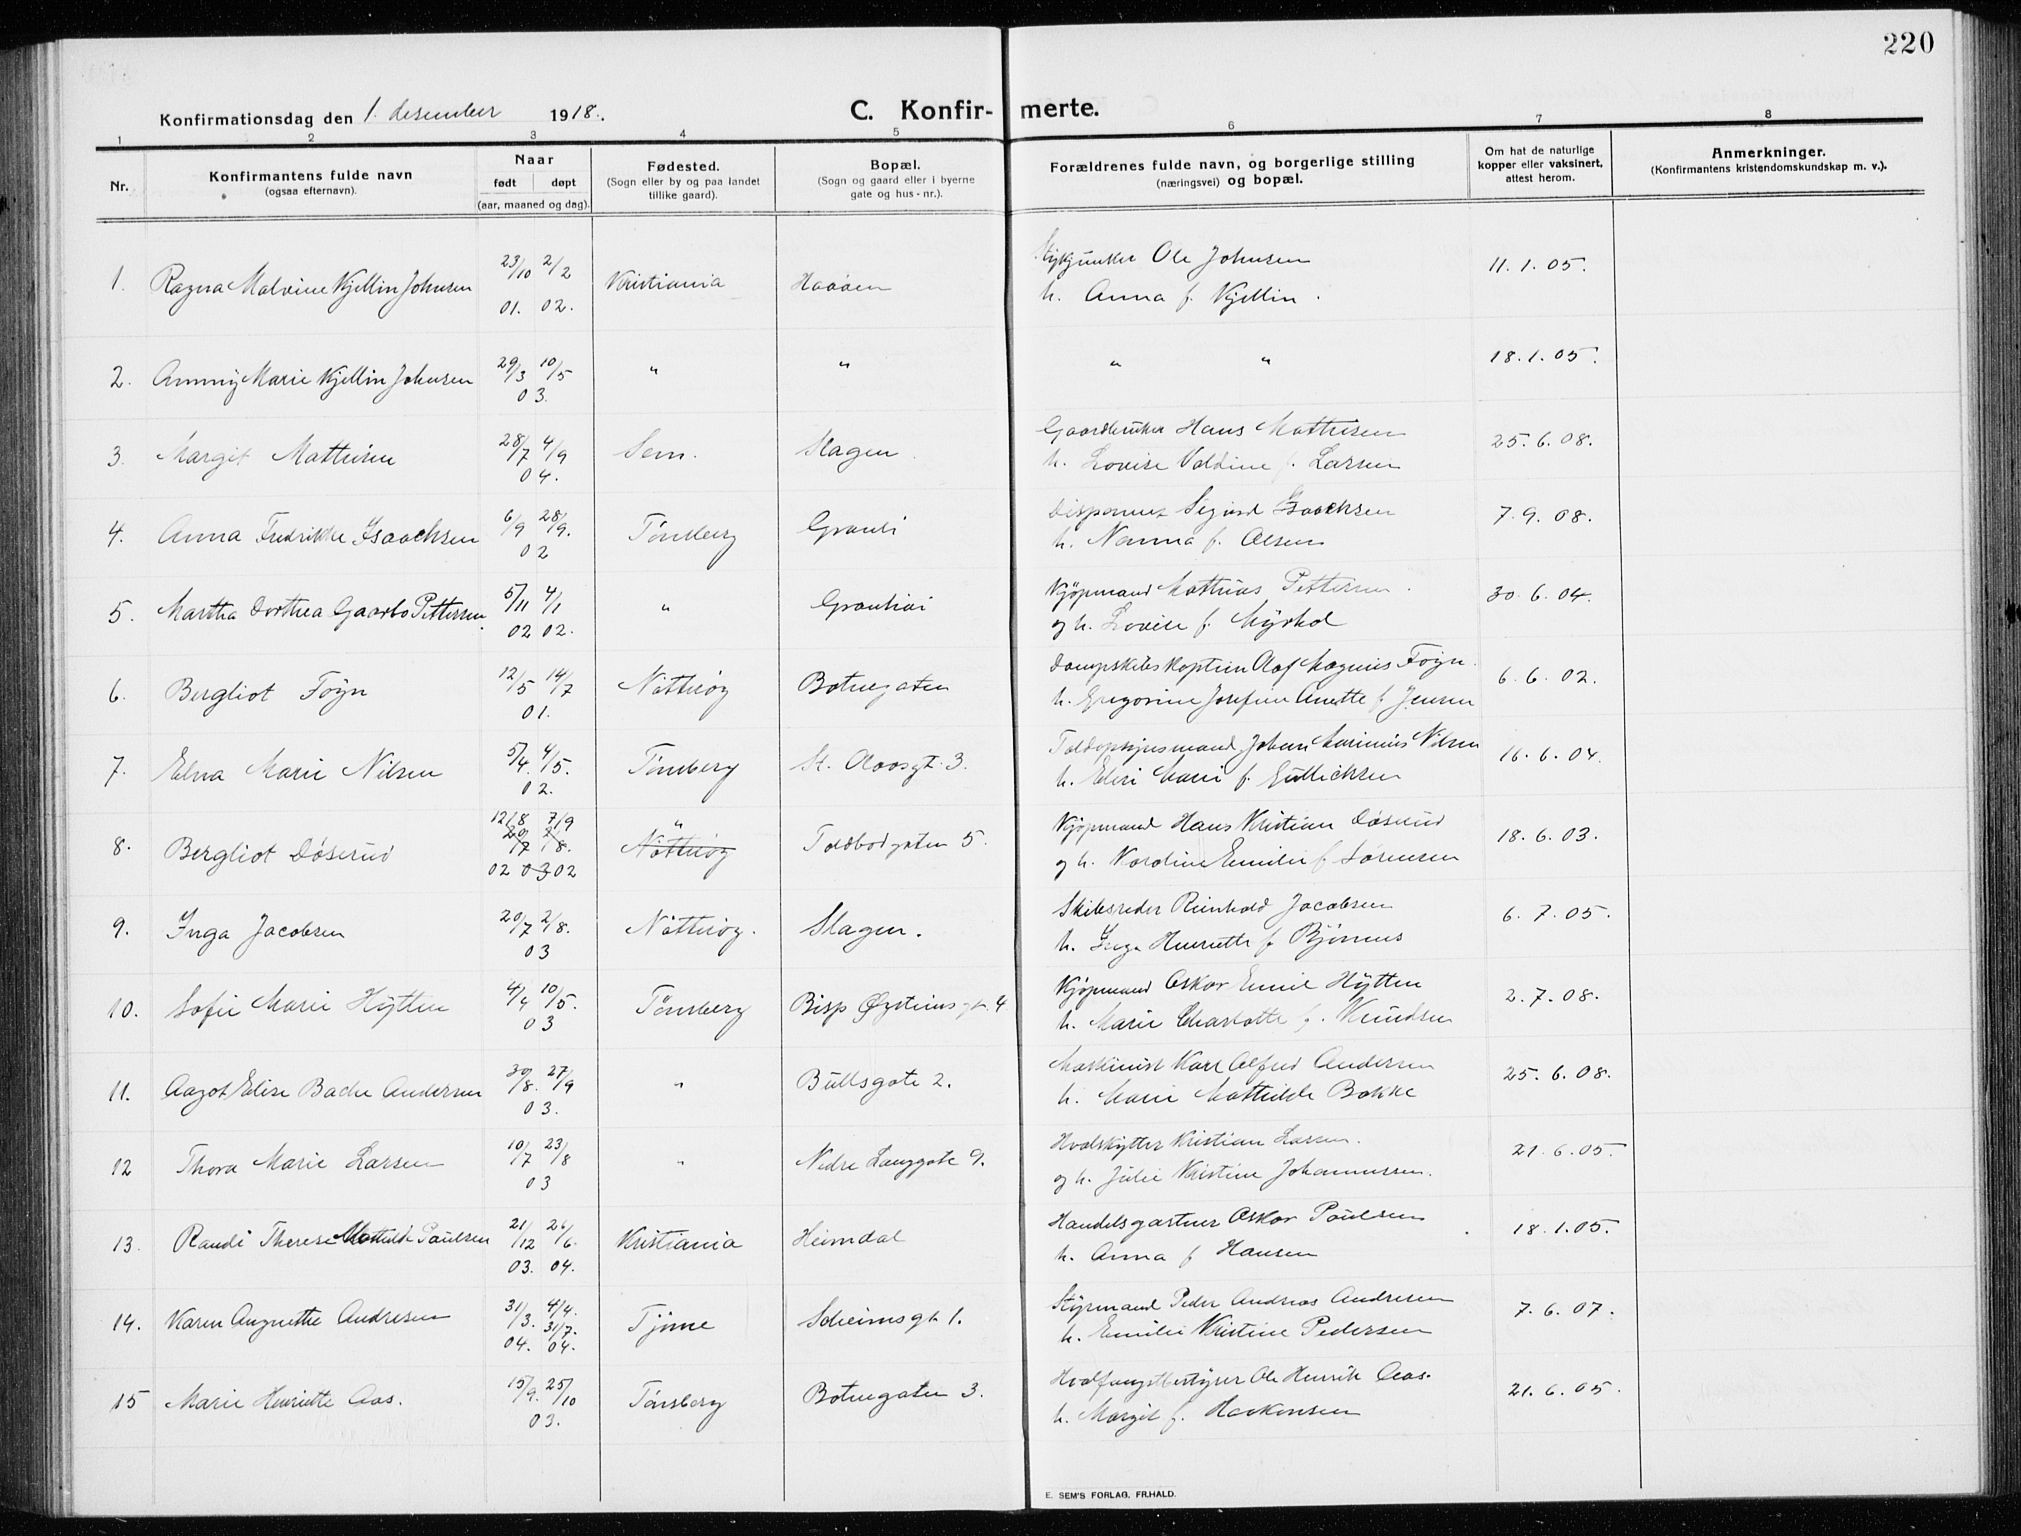 220
Konfirmationsdag den 1. desember 1918.
C. Konfirmerte.
1 2 3 4 5 6 7 8
Nr.
Konfirmantens fulde navn
(ogsaa efternavn).
Naar
født døpt
(aar, maaned og dag).
Fødested.
(Sogn eller by og paa landet
tillike gaard).
Bopæl.
(Sogn og gaard eller i byerne
gate og hus-nr.).
Forældrenes fulde navn, og borgerlige stilling
(næringsvei) og bopæl.
Om hat de naturlige
kopper eller vaksinert,
attest herom.
Anmerkninger.
(Konfirmantens kristendomskundskap m. v.).
1. Ragna Malvine Kjellin Johnsen 23/10 01. 2/2 02. Kristiania Haaøen Ole Johnsen 11.1.05.
h. Anna f. Kjellin.
2. Ammy Marie Kjellin Johnsen 29/3 10/5 03. " " " " 18.1.05.
3. Margit Mathisen 28/7 4/9 04. Sem. Slagen. Gaardbruker Hans Mathisen 25.6.08.
h. Lovise Valdine f. Larsen
4. Anna Fredrikke Isaachsen 6/9 28/9. 02 Tønsberg Granli Disponent Sigurd Isaachsen 7.9.08.
h. Nanna f. Olsen
5. Martha Dorthea Gaarbo Pettersen. 5/11 02 4/1 02. " Kjøpmand Mathias Pettersen. 30.6.04.
og h. Lovise f. Myrhol
6. Bergliot Föyn 12/5 14/7 01. Nötterøy Botnegaten Dampskibskaptein Olaf Magnus Föyn. 6.6.02.
h. Gregorine Josefine Anette f. Jensen
7. Elna Marie Nilsen 5/4. 4/5. 02. Tønsberg St. Olavsgt. 3. Toldopsynsmand Johan Marinius Nilsen 16.6.04.
h. Elin Marie f. Gullichsen
8. Bergliot Døserud 12/8 7/9 20/7 2/8. 02 03 02 " Nötterøy Toldbodgaten 5. Kjøpmand Hans Kristian Døserud 18.6.03.
og h. Karoline Emilie f. Sørensen
9. Inga Jacobsen 20/7 2/8. 03 Nötterøy. Slagen. Skibsreder Reinhold Jacobsen 6.7.05.
h. Inga Henriette f. Bjönnes
10. Sofie Marie Hytten 4/4 10/5. 03 Tønsberg Bisp Øysteins gt. 4 Kjøpmand Oskar Emil Hytten 2.7.08.
h. Marie Charlotte f. Knudsen
11. Aagot Elise Bache Andersen 30/8. 27/9 03. " Bullsgate 2. Maskinist Karl Alfred Andersen 25.6.08.
h. Marie Mathilde Bakke
12 Thora Marie Larsen 10/7 23/8 03 " Nedre Langgate 9. Hvalskytter Kristian Larsen. 21.6.05.
og h. Julie Kristine Johannessen.
13. Randi Therese Mathilde Paulsen 21/12 03. 26/6. 04. Kristiania Heimdal Handelsgartner Oskar Paulsen 18.1.05.
h. Anna f. Hansen
14. Karen Augnette Andresen 31/3. 04. 4/4. 31/7. 04. Tjøme Solheimsgt. 1. Styrmand Peder Andreas Andresen 7.6.07.
h. Emilie Kristine Pedersen
15 Marie Henriette Aas. 15/9. 25/10 03. Tønsberg Botnegaten 3. Hvalfangstbestyrer Ole Henrik Aas. 21.6.05.
h. Margit f. Haakonsen
E. SEM'S FORLAG, FR.HALD.